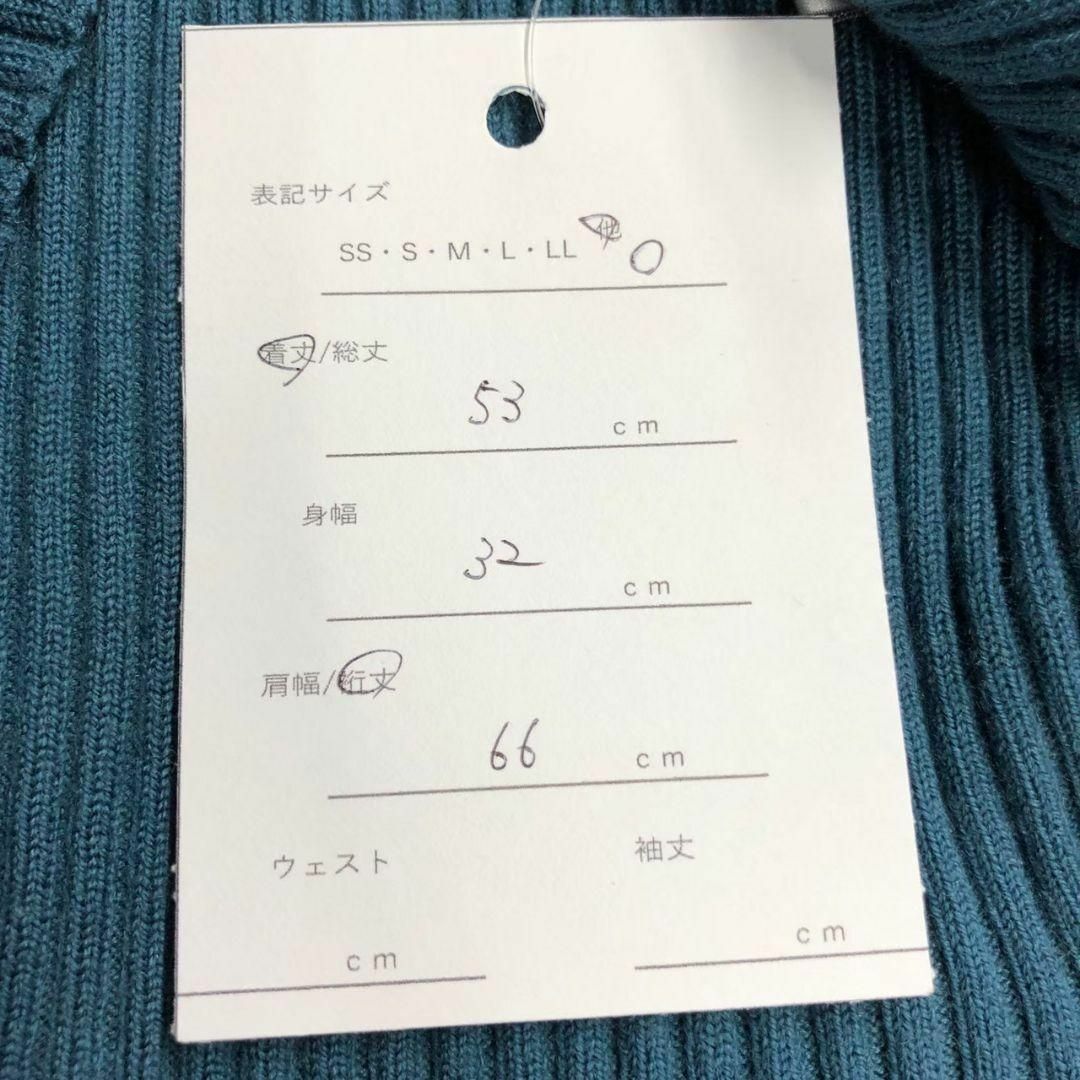 表記サイズ
SS・S・M・L・LL 他 0
着丈/総丈
53 cm
身幅
32 cm
肩幅/裄丈
66 cm
ウェスト 袖丈
cm cm